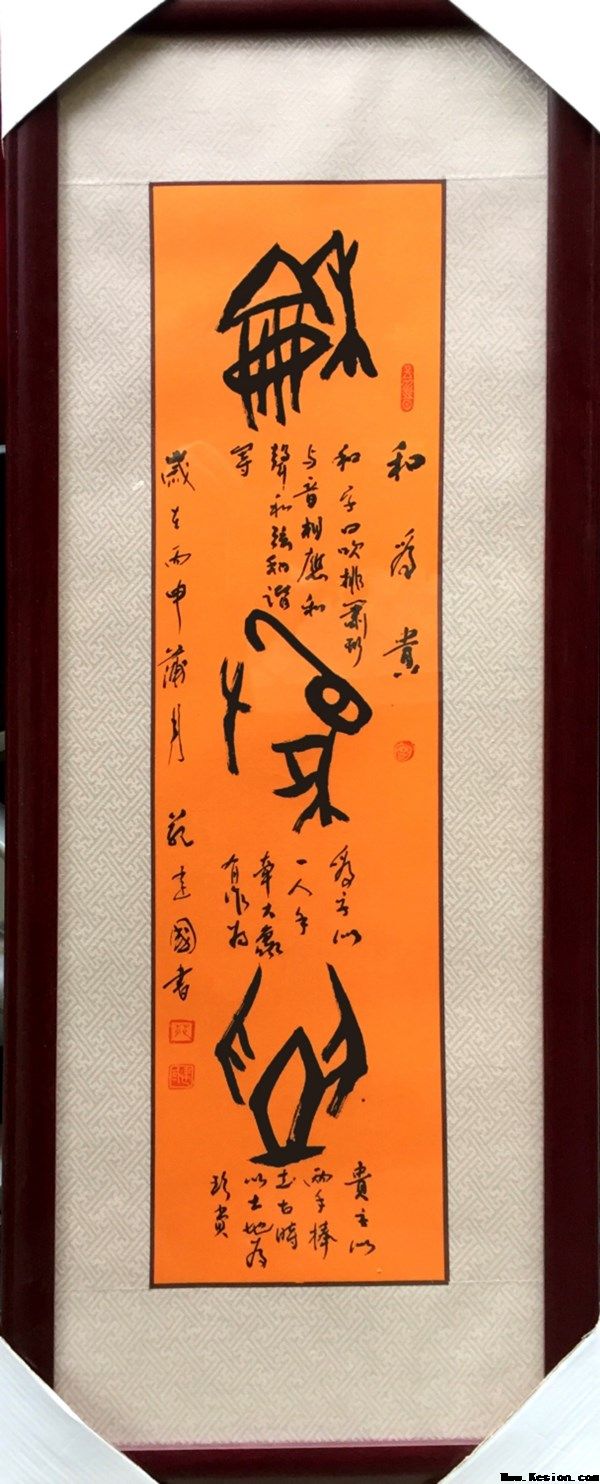 龢
為
貴
和為貴
和字口吹排簫形
与音相應和
聲和弦和谐
等
為字似
一人手
牽大象
有作为
貴字似
两手捧
土古時
以土地为
珍貴
歲在丙申蒲月 建國書
Www.Kesion.com